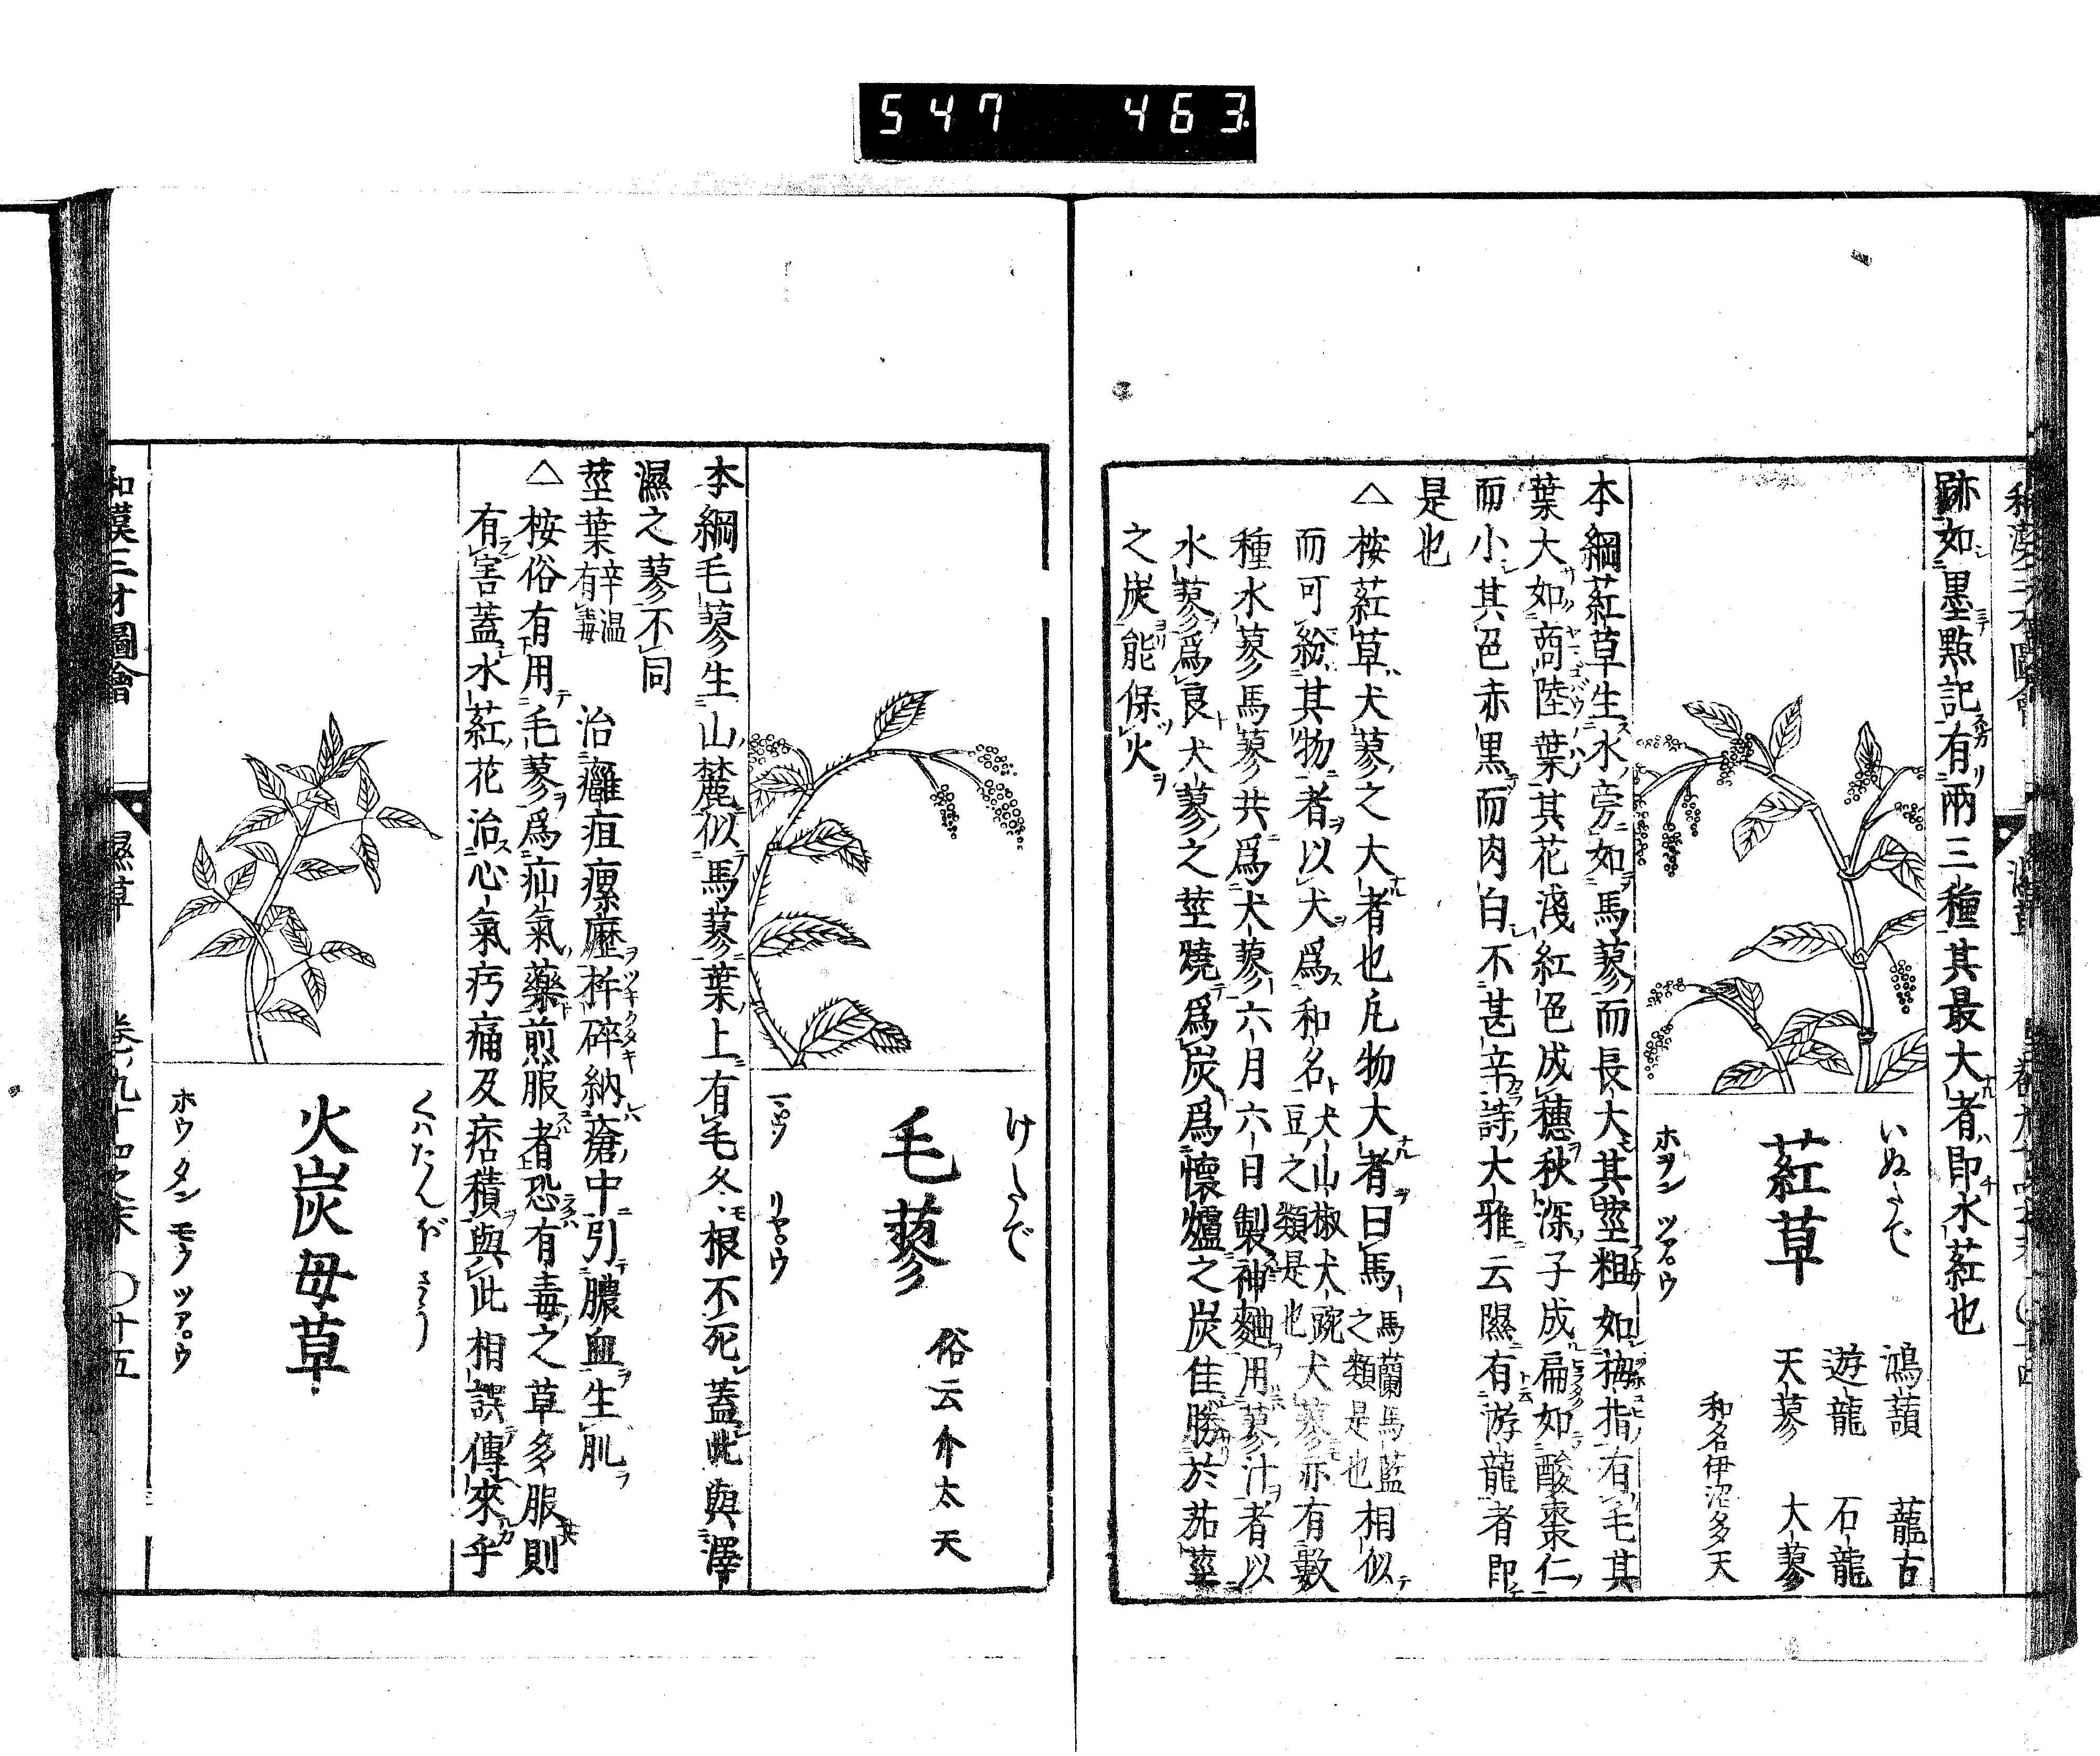 547 463
跡如墨點記有兩三種其最大者即水葒也
いぬたで
葒草
ホヲン ツア゜ウ
鴻䕬 蘢古
遊龍 石龍
天蓼 大蓼
和名伊沼多天
本綱葒草生水旁如馬蓼而長大其莖粗如拇指有毛其
葉大如商陸葉其花淺紅色成穗秋深子成扁如酸棗仁
而小其色赤黒而肉白不甚辛詩大雅云隰有游龍者即
是也
△桉葒草犬蓼之大者也凡物大者曰馬馬蘭馬藍之類是也相似
而可紛其物者以犬爲和名犬山椒犬豌豆之類是也犬蓼亦有數
種水蓼馬蓼共爲犬蓼六月六日製神麯用蓼汁者以
水蓼爲良犬蓼之莖燒爲炭爲懷爐之炭佳勝於茄莖
之炭能保火
けたで
毛蓼
俗云介太天
本綱毛蓼生山麓似馬蓼葉上有毛冬根不死蓋此與澤
濕之蓼不同
莖葉辛温有毒 治癰疽瘰癧杵碎納瘡中引膿血生肌
△桉俗有用毛蓼爲疝氣藥煎服者恐有毒之草多服則
有害蓋水葒花治心氣疞痛及痞積與此相誤傳來乎
くはたんぼさう
火炭母草
ホウ タン モウ ツア゜ウ
和漢三才圖會 濕草 卷ノ九十四之末 〇十五